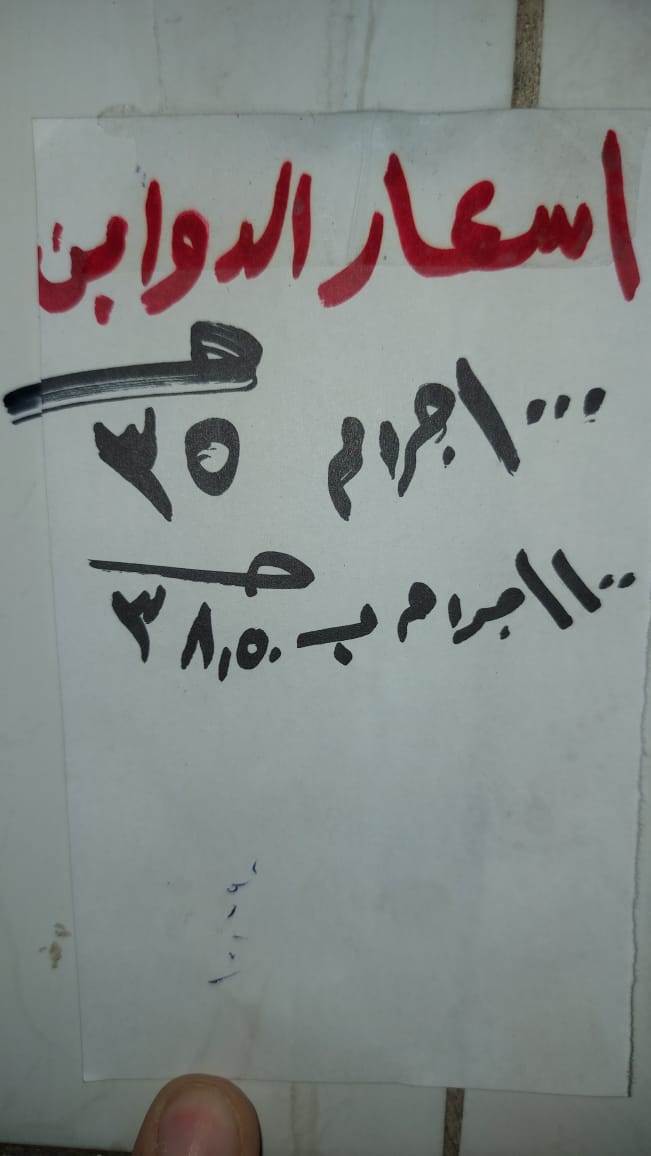 اسعار الدواجن
١٠٠٠ جرام ٣٥ جـ
١١٠٠ جرام ب ٣٨,٥٠ جـ